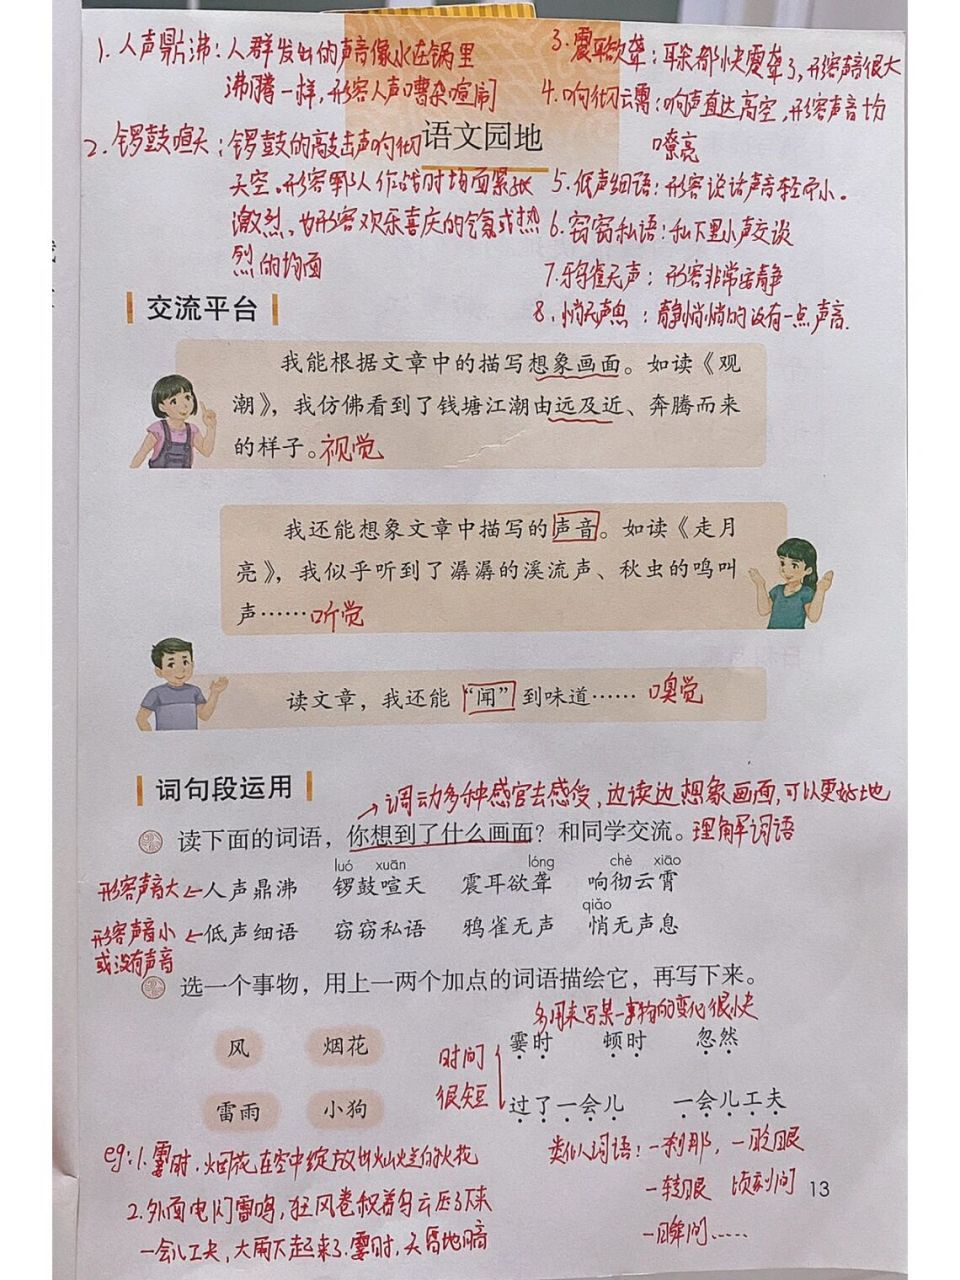 1. 人声鼎沸：人群发出的声音像水在锅里
沸腾一样，形容人声嘈杂喧闹
2. 锣鼓喧天：锣鼓的敲击声响彻
天空。形容军队作战时场面紧张
激烈，也形容欢乐喜庆的气氛或热
烈的场面
3. 震耳欲聋：耳朵都快震聋了，形容声音很大
4. 响彻云霄：响声直达高空，形容声音十分
嘹亮
5. 低声细语：形容说话声音轻而小。
6. 窃窃私语：私下里小声交谈
7. 鸦雀无声：形容非常安静
8. 悄无声息：静悄悄的没有一点声音.
语文园地
交流平台
我能根据文章中的描写想象画面。如读《观
潮》，我仿佛看到了钱塘江潮由远及近、奔腾而来
的样子。视觉
我还能想象文章中描写的声音。如读《走月
亮》，我似乎听到了潺潺的溪流声、秋虫的鸣叫
声……听觉
读文章，我还能“闻”到味道…… 嗅觉
词句段运用
→调动多种感官去感受，边读边想象画面，可以更好地
读下面的词语，你想到了什么画面？和同学交流。理解词语
luó xuān lóng chè xiāo
形容声音大 ← 人声鼎沸 锣鼓喧天 震耳欲聋 响彻云霄
qiǎo
形容声音小 ← 低声细语 窃窃私语 鸦雀无声 悄无声息
或没有声音
选一个事物，用上一两个加点的词语描绘它，再写下来。
多用来写某一事物的变化很快
风 烟花 时间 霎时 顿时 忽然
雷雨 小狗 很短 过了一会儿 一会儿工夫
eg: 1. 霎时，烟花在空中绽放出灿烂的火花
2. 外面电闪雷鸣，狂风卷积着乌云压了下来
一会儿工夫，大雨下起来了.霎时，天昏地暗
类似词语：一刹那，一眨眼
一转眼 顷刻间
一瞬间……
13